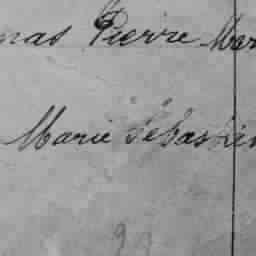 nas Pierre Mar
Marie Sébastien
99